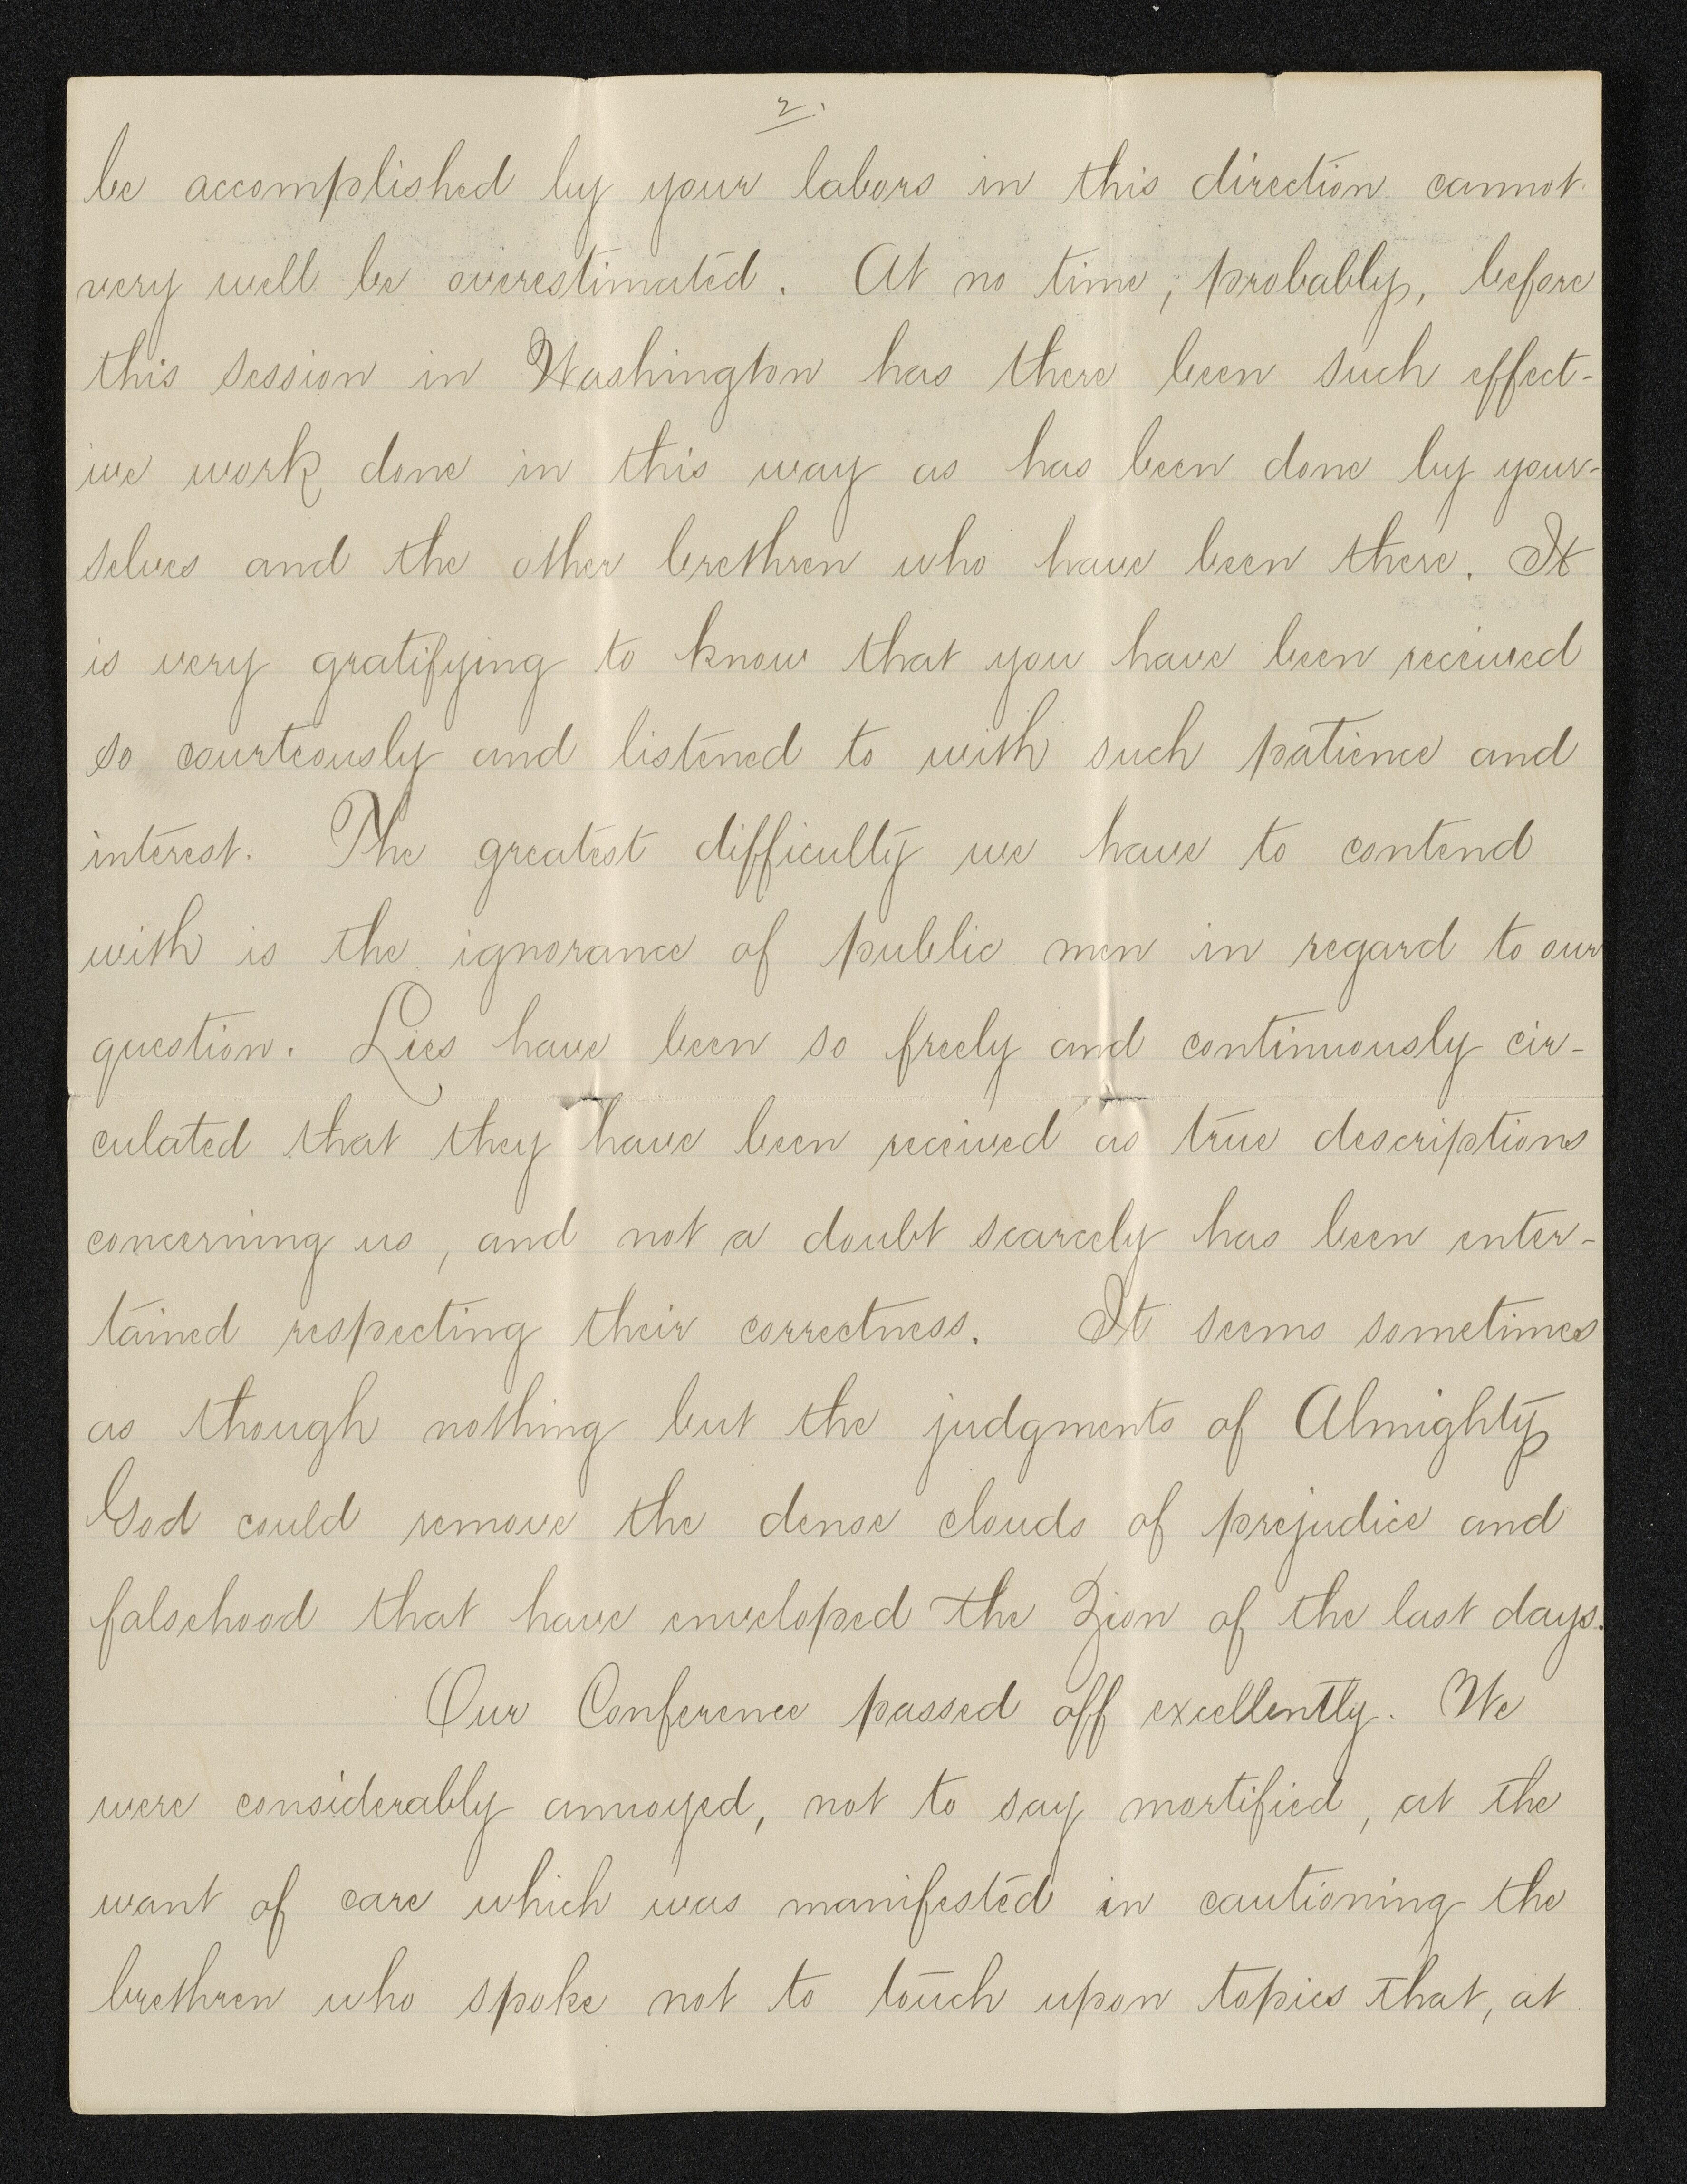 2.
be accomplished by your labors in this direction cannot
very well be overestimated. At no time, probably, before
this session in Washington has there been such effect-
ive work done in this way as has been done by your-
selves and the other brethren who have been there. It
is very gratifying to know that you have been received
so courteously and listened to with such patience and
interest. The greatest difficulty we have to contend
with is the ignorance of public men in regard to our
question. Lies have been so freely and continuously cir-
culated that they have been received as true descriptions
concerning us, and not a doubt scarcely has been enter-
tained respecting their correctness. It seems sometimes
as though nothing but the judgments of Almighty
God could remove the dense clouds of prejudice and
falsehood that have enveloped the Zion of the last days.
Our Conference passed off excellently. We
were considerably annoyed, not to say mortified, at the
want of care which was manifested in cautioning the
brethren who spoke not to touch upon topics that, at